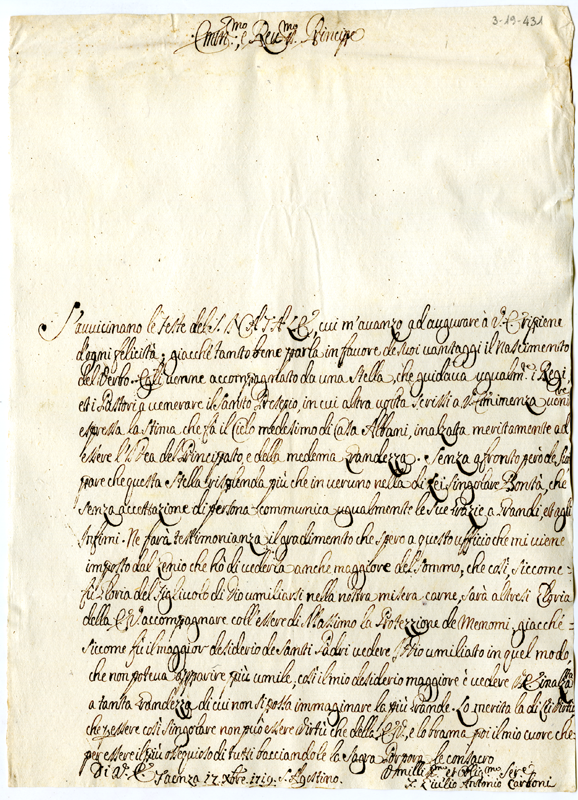 3-19-431
Em.mo e Rev.mo Principe
S'avvicinano le feste del S. NATALE, cui m'avanzo ad augurare à V. E. ripiene
d'ogni felicità, giacche tanto bene parla in favore de suoi vantaggi il Nascimento
del Verbo. Egli venne accompagnato da una Stella, che guidava ugualm.te i Regi
et i Pastori a venerare il Santo Presepio, in cui altra volta scrissi a V. Em.inenza venir
espressa la stima, che fà il Cielo medesimo di Casa Albani, inalzata meritamente ad
essere l'Idea del Principato e della medema Grandezza. Senza affronto però de suoi
pare che questa Stella risplenda più che in veruno nella di Lei singolare Bontà, che
senza accettazione di persona communica ugualmente le sue Grazie a Grandi, et agli
Infimi. Ne farà testimonianza il gradimento che spero a questo ufficio che mi viene
imposto dal Genio che hò di vederla anche maggiore del sommo, che così, siccome
fù Gloria del Figliuolo di Dio umiliarsi nella nostra misera carne, sarà altresì Gloria
della E. V. accompagnare coll'essere di Massimo la Protezzione de Menomi, giacchè
siccome fù il maggior desiderio de Santi Padri vedere Iddio umiliato in quel modo,
che non poteva apparire più umile, così il mio desiderio maggiore è vedere V. E. inalzata
a tanta Grandezza di cui non si possa immaginare la più Grande. Lo merita la di Lei Virtù
che per essere così singolare non può essere virtù che della E. V., e lo brama poi il mio cuore che
per essere il più ossequioso di tutti bacciandole la Sagra Porpora le consacro
Di V. E. Faenza 17 Xbre 1719 S. Agostino.
Umiliss.mo et Oblig.mo Ser.e
F. Giulio Antonio Carboni